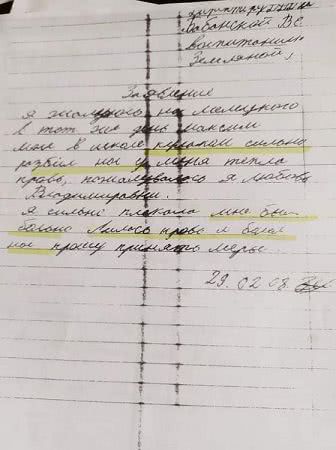 Лабанской ВС
воспитанник
Земляной
Заявление
Я жалуюсь на Мелецкого
в тот же день Максим
мне в школе кулаком сильно
разбил нос у меня текла
кровь, пожаловалась я Любовь
Владимировне.
Я сильно плакала мне было
больно лилась кровь и болел
нос прошу принять меры.
29.02.08.